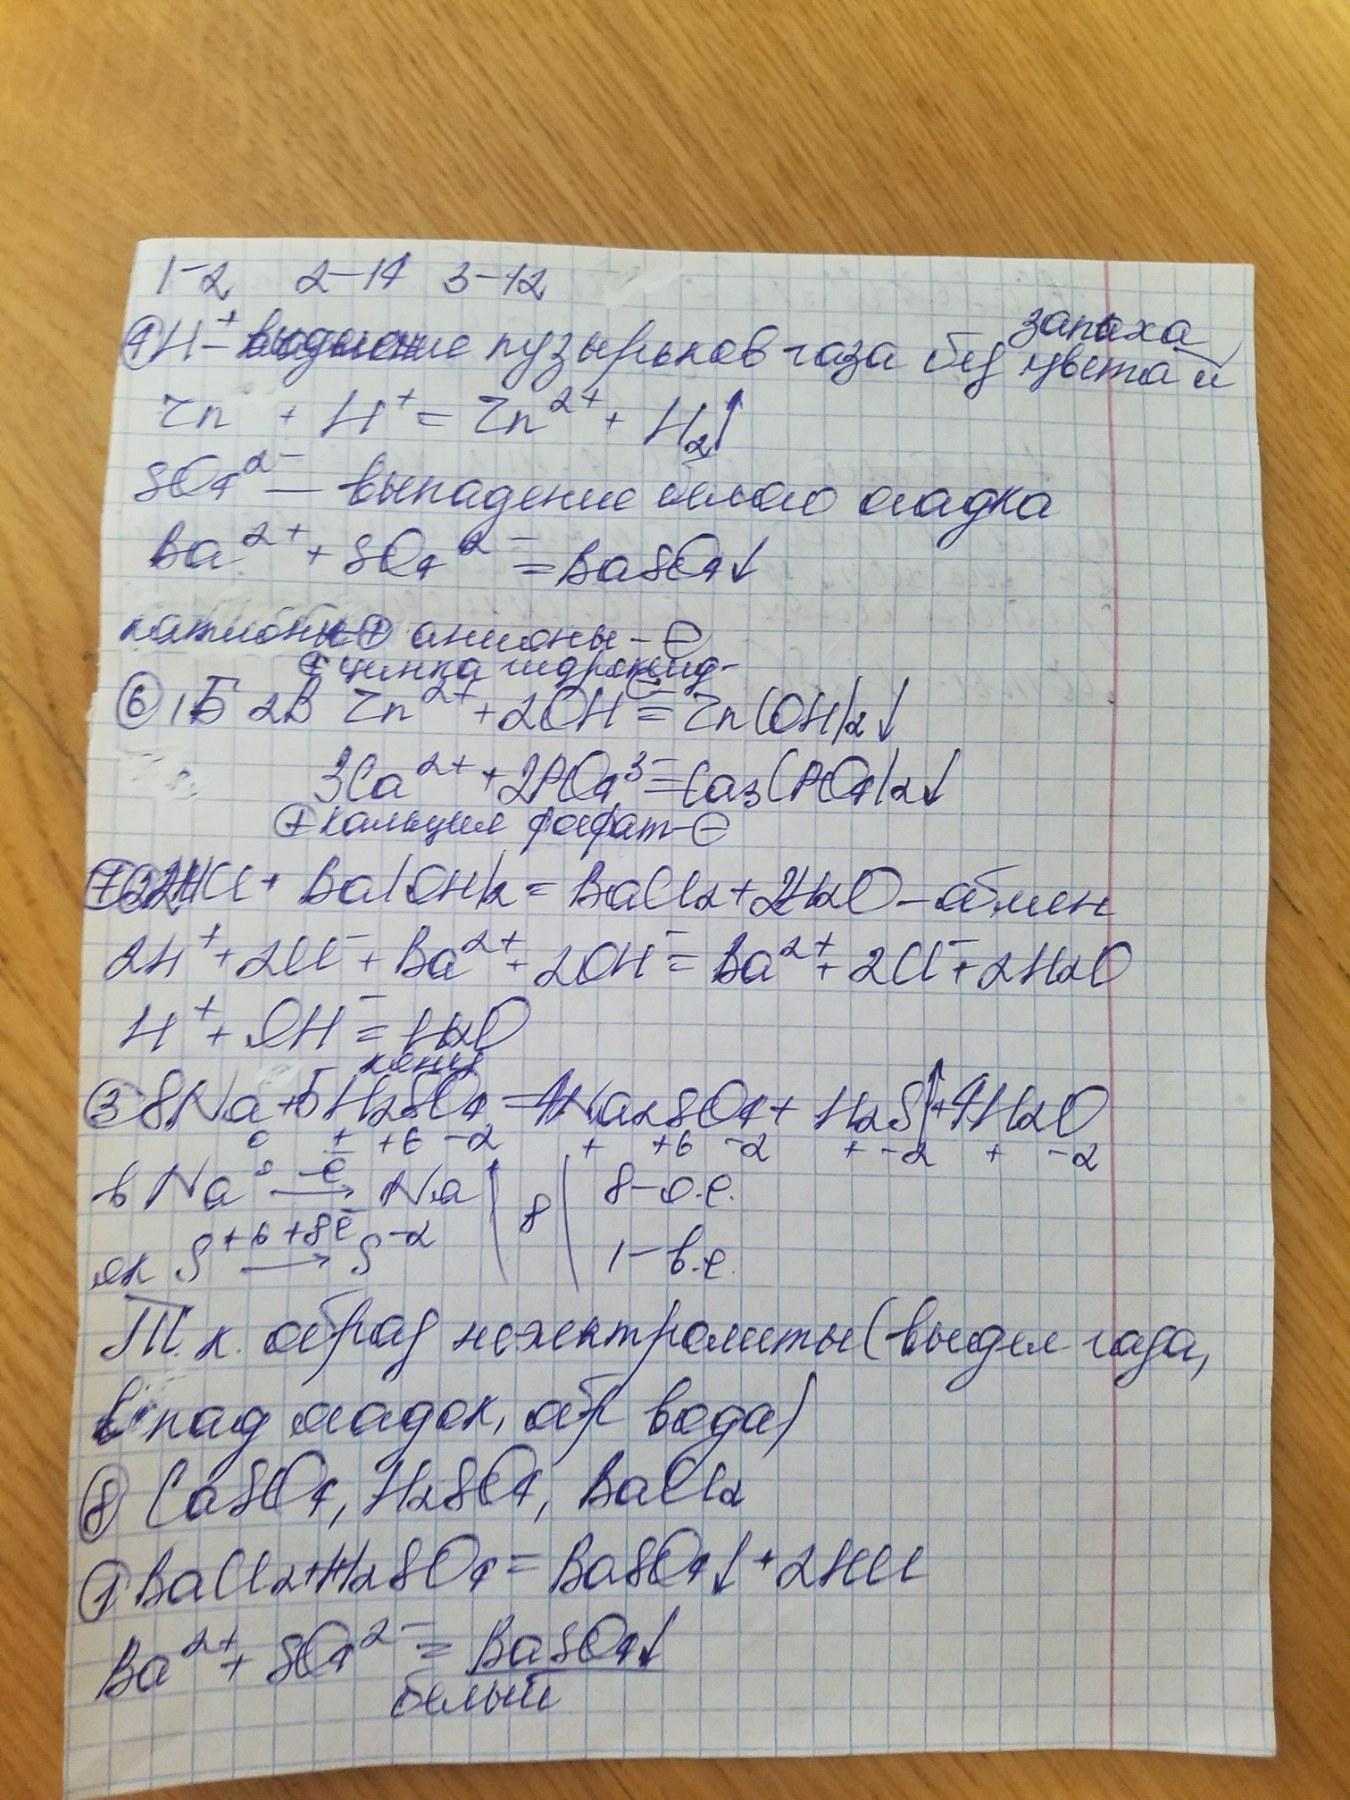 1-2 2-14 3-12
④ H⁺ - выделение пузырьков газа без цвета и запаха
Zn + H⁺ = Zn²⁺ + H₂↑
SO₄²⁻ — выпадение белого осадка
Ba²⁺ + SO₄²⁻ = BaSO₄↓
катионы ⊕ анионы - ⊖
⊕ цинка гидроксид-⊖
⑥ 1Б 2В Zn²⁺ + 2OH⁻ = Zn(OH)₂↓
3Ca²⁺ + 2PO₄³⁻ = Ca₃(PO₄)₂↓
⊕ кальция фосфат-⊖
⑦ 2HCl + Ba(OH)₂ = BaCl₂ + 2H₂O - обмен
2H⁺ + 2Cl⁻ + Ba²⁺ + 2OH⁻ = Ba²⁺ + 2Cl⁻ + 2H₂O
H⁺ + OH⁻ = H₂O
конц
③ 8Na + 5H₂SO₄ = 4Na₂SO₄ + H₂S↑ + 4H₂O
0 + +6 -2 + +6 -2 + -2 + -2
в Na⁰ -ē → Na | 8 | 8-о.е.
ок S⁺⁶ +8ē → S⁻² 1-в.е.
Т.к. образ неэлектролиты (выдел газа,
впад осадок, обр вода)
⑧ CaSO₄, H₂SO₄, BaCl₂
① BaCl₂ + H₂SO₄ = BaSO₄↓ + 2HCl
Ba²⁺ + SO₄²⁻ = BaSO₄↓
белый